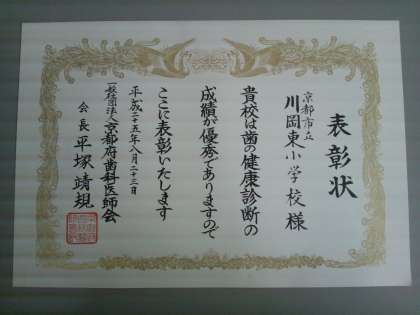 表彰状
京都市立
川岡東小学校様
貴校は歯の健康診断の
成績が優秀でありますので
ここに表彰いたします
平成二十五年八月二十三日
一般社団法人京都府歯科医師会
会長平塚靖規